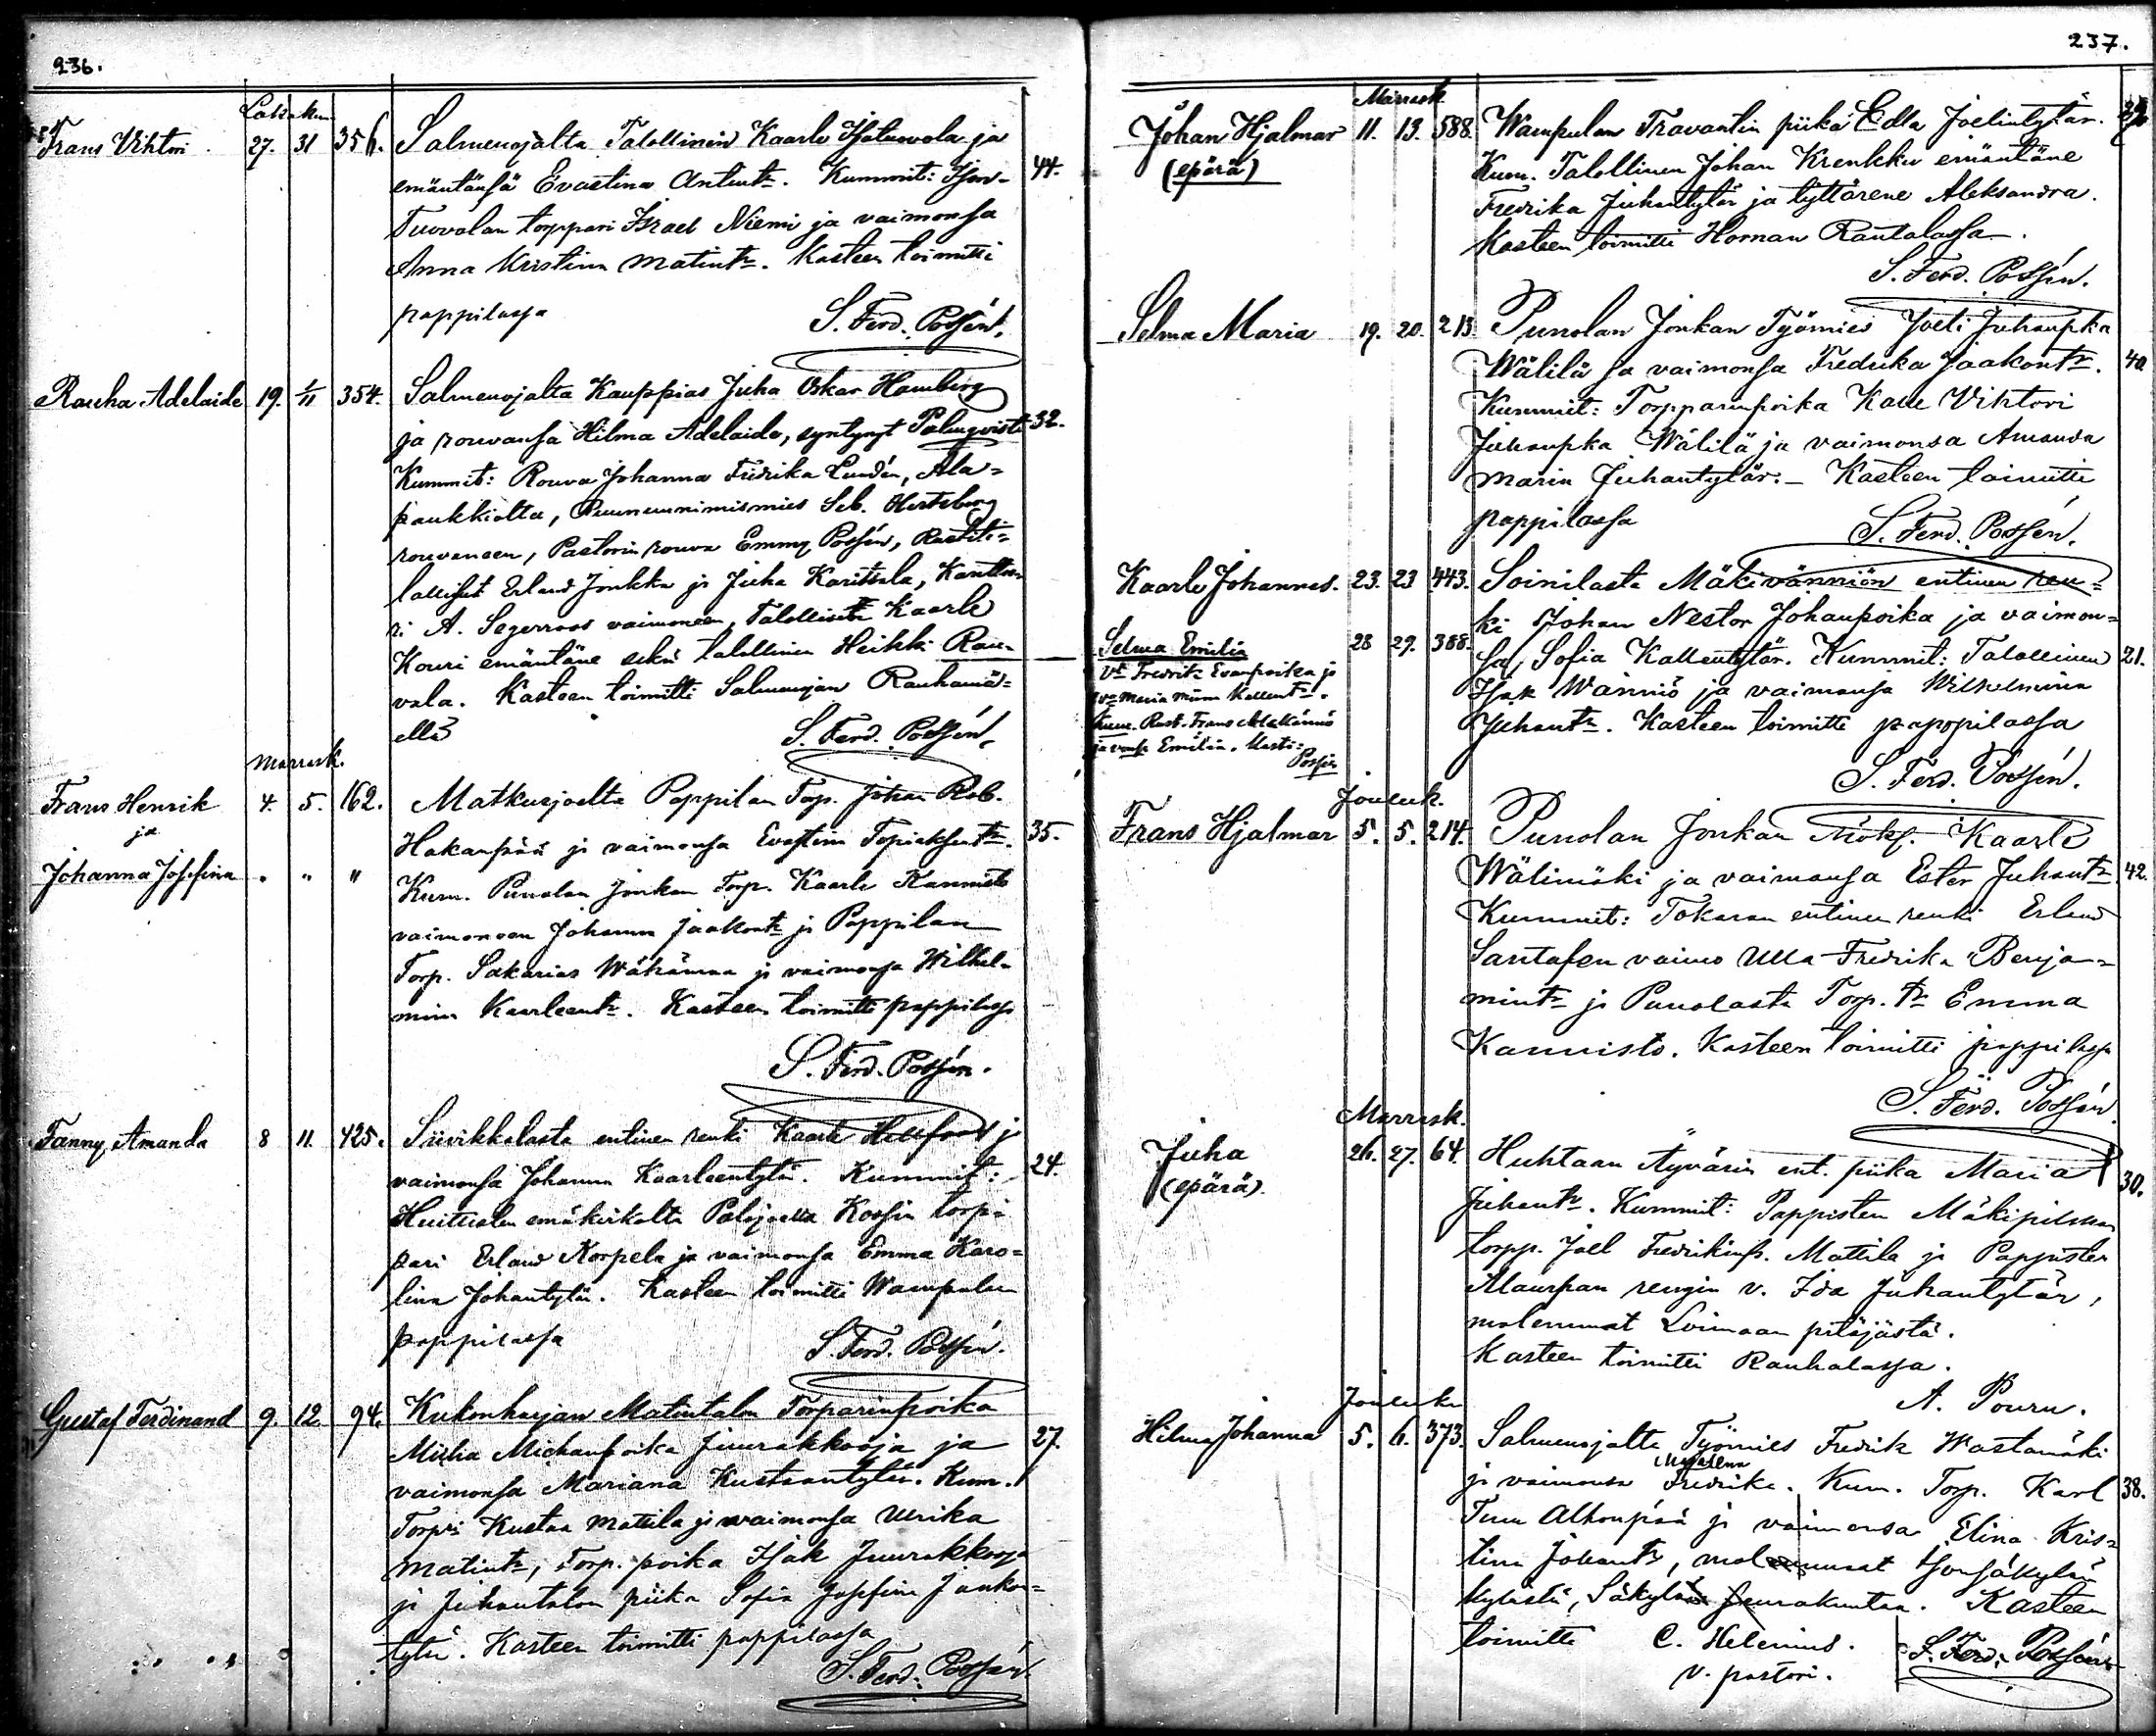 236.
Lokakuu
Frans Vihtori 27. 31 356. Salmenojalta Talollinen Kaarle Isotuovola ja
emäntänsä Evastina Antintr. Kummit: Ison- 44.
Tuovolan torppari Israel Niemi ja vaimonsa
Anna Kristina Matintr. Kasteen toimitti
pappilassa S. Ferd. Possén.
Rauha Adelaide 19. 1/11 354. Salmenojalta Kauppias Juha Oskar Hamberg
ja rouvansa Hilma Adelaide, syntynyt Palmqvist 32.
Kummit: Rouva Johanna Fredrika Lundén, Ala-
paukkiolta, Ruununnimismies Seb. Hertsberg
rouvaneen, Pastorin rouva Emmy Possén, Rustiti-
lalliset Erland Jonkka ja Juha Karitsala, Kantto-
ri A. Segerroos vaimoneen, Talolliset Kaarle
Kouri emäntäne sekä talollinen Heikki Rau-
vala. Kasteen toimitti Salmenojan Rauhamä-
ellä S. Ferd. Possén.
Marrask.
Frans Henrik 4. 5. 162. Matkusjoelta Pappilan Torp. Johan Rob.
ja
Hakanpää ja vaimonsa Evastina Topiaksentr. 35.
Johanna Josefina " " " Kum. Punolan Jonkan Torp. Kaarle Kannisto
vaimoneen Johanna Jaakontr ja Pappilan
Torp. Sakarias Wähämaa ja vaimonsa Wilhel-
mina Kaarleentr. Kasteen toimitti pappilassa
S. Ferd. Possén.
Fanny Amanda 8 11. 425. Siivikkalasta entinen renki Kaarle Hellfors ja
vaimonsa Johanna Kaarleentytär. Kummit: 24.
Huittisten emäkirkolta Palojoella Kossin torp-
pari Erland Korpela ja vaimonsa Emma Karo-
lina Johantytär. Kasteen toimitti Wampulan
pappilassa S. Ferd. Possén.
Gustaf Ferdinand 9. 12. 94. Kukonharjan Matintalon Torparinpoika
Miska Mickanpoika Juurakkooja ja 27.
vaimonsa Mariana Kustaantytär. Kum.
Torpri Kustaa Mattila ja vaimonsa Ulrika
Matintr, Torp. poika Isak Juurakkooja
ja Juhantalon piika Sofia Josefina Jaakon-
tytär. Kasteen toimitti pappilassa
S. Ferd. Possén.
237.
Marrask.
Johan Hjalmar 11. 13. 588. Wampulan Travantin piika Edla Joelintytär.
(epärä) Kum. Talollinen Johan Krenkku emäntäne
Fredrika Juhantytär ja tyttärene Aleksandra.
Kasteen toimitti Hornan Rantalassa.
S. Ferd. Possén.
Selma Maria 19. 20. 213 Punolan Jonkan Työmies Joeli Juhanpka
Wälilä ja vaimonsa Fredrika Jaakontr. 40
Kummit: Torpparinpoika Kalle Viktori
Juhanpka Wälilä ja vaimonsa Amanda
Maria Juhantytär. – Kasteen toimitti
pappilassa S. Ferd. Possén.
Kaarle Johannes. 23. 23 443. Soinilasta Mäkivänniön entinen ren-
ki Johan Nestor Johanpoika ja vaimon-
Selma Emilia 28 29. 388. sa Sofia Kallentytär. Kummit: Talollinen 21.
Vt Fredrik Evanpoika ja
va Maria Miina Kallentr.
Isak Wänniö ja vaimonsa Wilhelmina
Kum. Rust. Frans Alakännö
Juhantr. Kasteen toimitti pappilassa
ja vmsa Emilia. Kasti:
Possén
S. Ferd. Possén.
Jouluk.
Frans Hjalmar 5. 5. 214. Punolan Jonkan Mökj. Kaarle
Wälimäki ja vaimonsa Ester Juhantr. 42.
Kummit: Tokaran entinen renki Erland
Santasen vaimo Ulla Fredrika Benja-
mintr ja Punolasta Torp. tr Emma
Kannisto. Kasteen toimitti pappilassa
S. Ferd. Possén.
Marrask.
Juha 26. 27. 64. Huhtaan Äyvärin ent. piika Maria
(epärä). Juhantr. Kummit: Pappisten Mäkipilssan 30.
torpp. Joel Fredrikinp. Mattila ja Pappisten
Alaurpan rengin v. Ida Juhantytär,
molemmat Loimaan pitäjästä.
Kasteen toimitti Rauhalassa.
A. Pouru.
Jouluku
Hilma Johanna 5. 6. 373. Salmenojalta Työmies Fredrik Wastamäki
Majalena
ja vaimonsa Fredrika. Kum. Torp. Karl 38.
Tuu Alhonpää ja vaimonsa Elina Kris-
tina Johantr, molemmat Isonsäkylän
kylästä, Säkylän seurakuntaa. Kasteen
toimitti C. Helenius. S. Ferd. Possén
v. pastori.